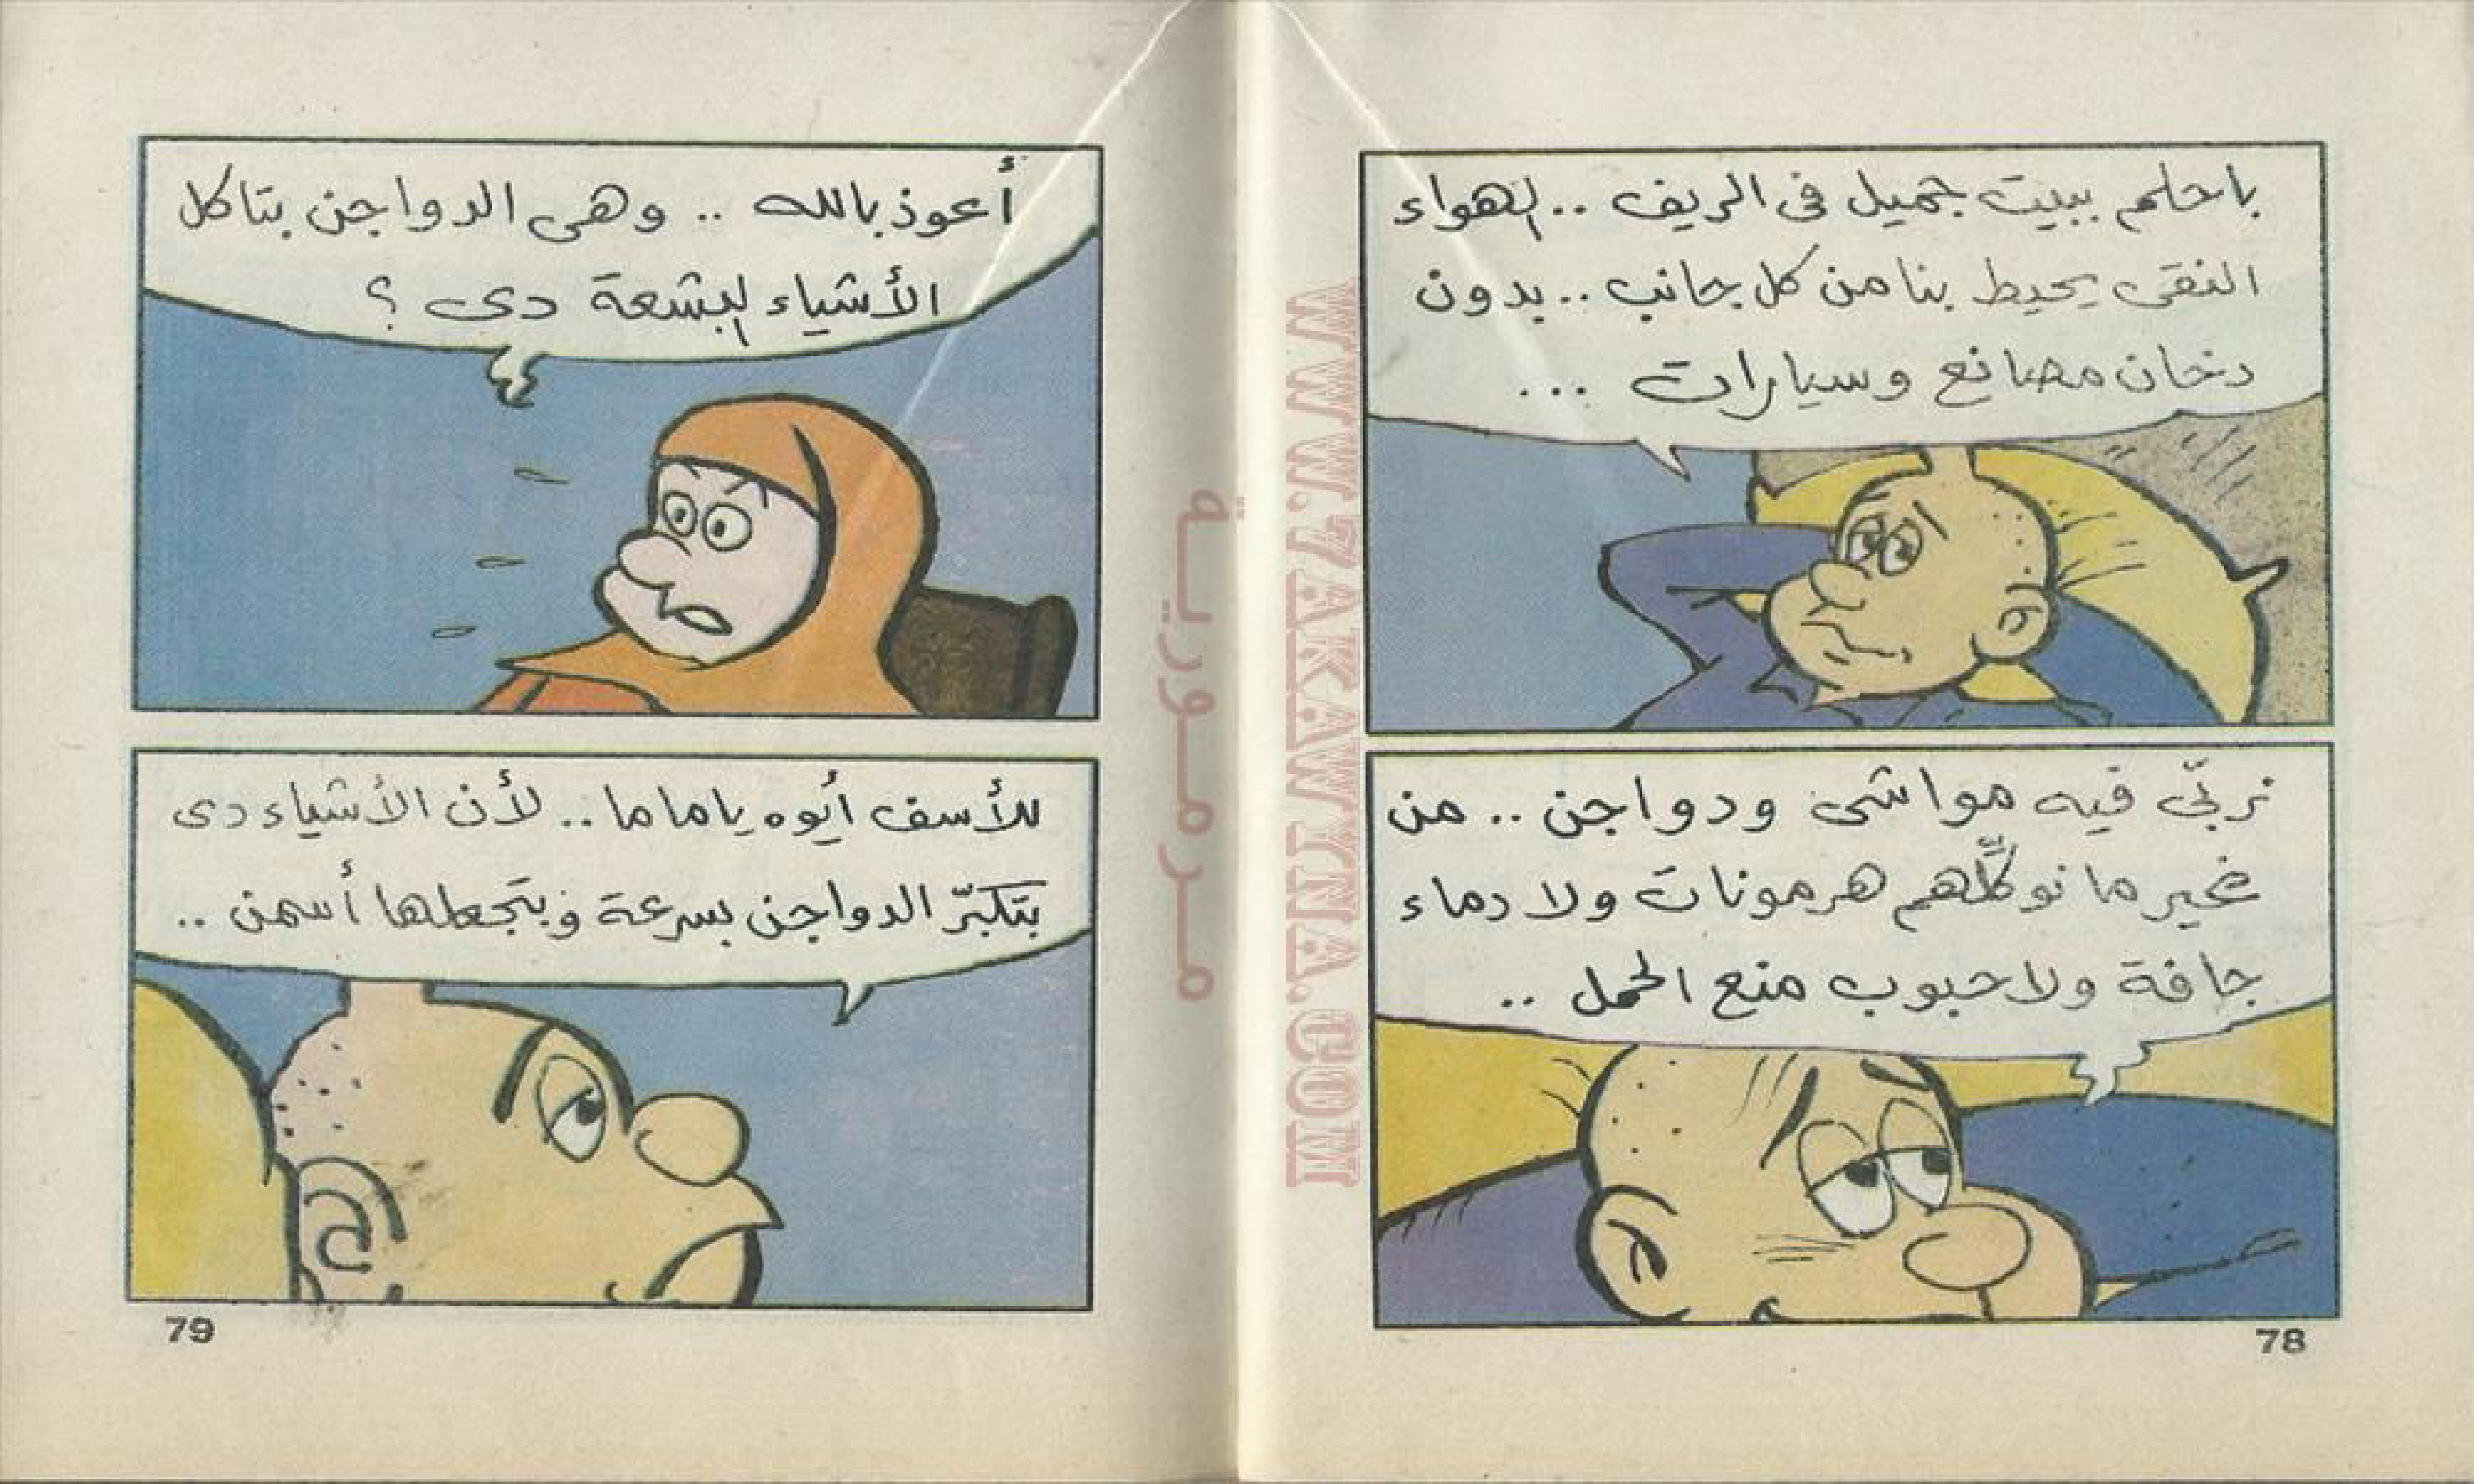 باحلم ببيت جميل فى الريف .. الهواء
النقى يحيط بنا من كل جانب .. بدون
دخان مصانع وسيارات ...
نربّى فيه مواشى ودواجن .. من
غير ما نوكّلهم هرمونات ولا دماء
جافة ولا حبوب منع الحمل ..
78
أعوذ بالله .. وهى الدواجن بتاكل
الأشياء البشعة دى ؟
للأسف أيوه ياماما .. لأن الأشياء دى
بتكبّر الدواجن بسرعة وبتجعلها أسمن ..
79
مرمورية
WWW.7AKAWINA.COM